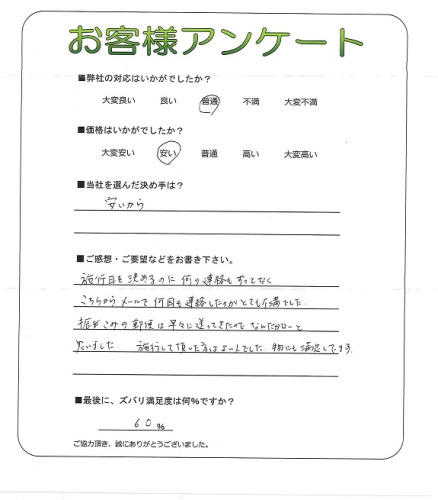 お客様アンケート
■弊社の対応はいかがでしたか?
大変良い 良い 普通 不満 大変不満
■価格はいかがでしたか?
大変安い 安い 普通 高い 大変高い
■当社を選んだ決め手は?
安いから
■ご感想・ご要望などをお書き下さい。
施行日を決めるのに何の連絡もずっとなく
こちらからメールで何回も連絡したのがとても不満でした.
振りこみの郵便は早々に送ってきたので なんだかなーと
思いました. 施行して頂いた方はよい人でした. 物にも満足してます.
■最後に、ズバリ満足度は何%ですか?
60%
ご協力頂き、誠にありがとうございました。